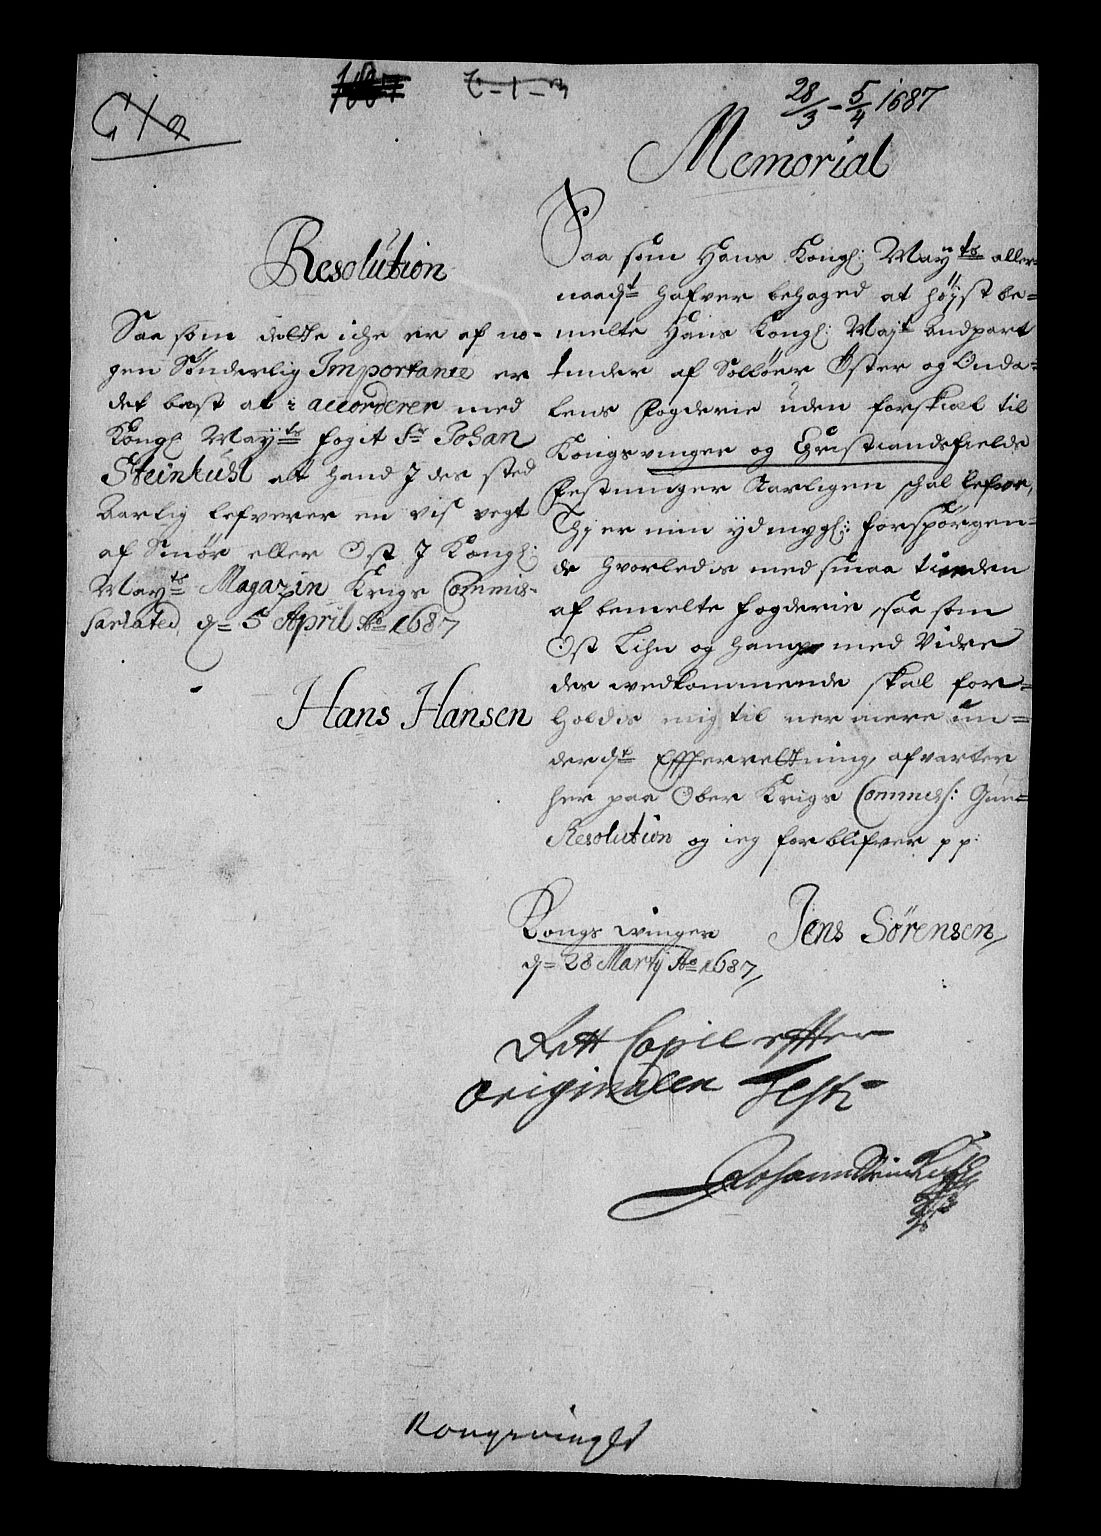 28/3 - 5/4 1687
Memorial
Saa som Hans Kongl: Mayts aller-
naadt hafver behaged at høyst be-
melte Hans Kongl: Mayt andpart
tinder af Solløer Øster og Ouda-
lens Fogderie uden forskiæl til
Kongsvinger og Christiansfields
Festninger Aarligen schal lefver,
Thj er min ydmygl: forspørgen-
de hvorledis med smaa tienden
af bemelte fogderie, saa som
Ost Lihn og hamp med Videre
des wedkommende skal for-
holdis mig til nermere un-
der dt Effterrettning, afvarter
her paa Ober Krigs Commiss: Gun-
Resolution og ieg forblifver pp:
Kongs winger
d= 28 Martij Ao 1687,
Jens Sørensen,
Resolution
Saa som dette iche er af no-
gen Sønderlig Importance er
det best at accorderer med
Kongl Mayts fogit Sr Johan
Steinkuhl att hand J des sted
Aarlig lefverer en vis vegt
af Smør eller Ost J Kongl:
Mayts Magazin Krigs Commis-
sariated, d= 5 April Ao 1687
Hans Hansen
Rett Copie effter
Originalen Test:
Johann Steinkuhl
Kongsvinger